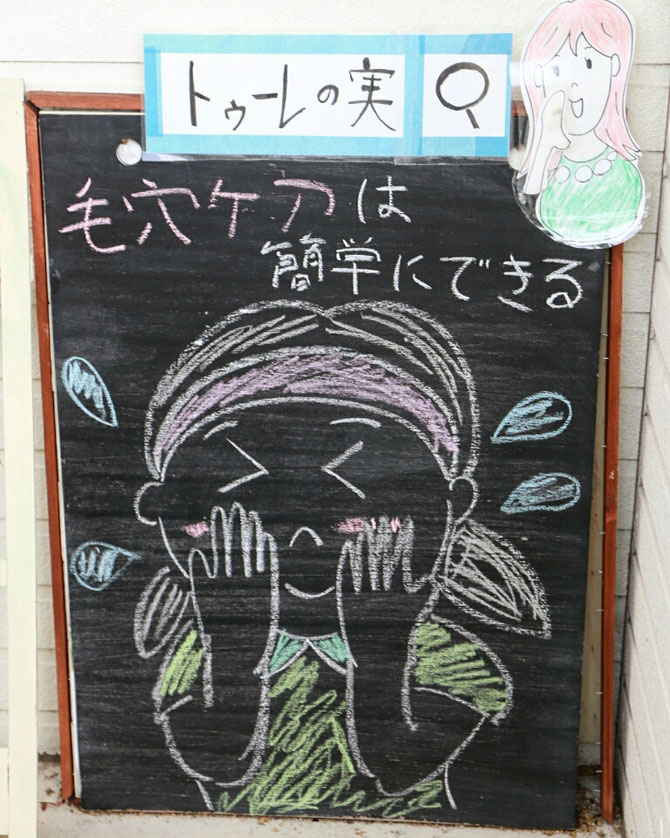 トゥーレの実
毛穴ケアは
簡単にできる